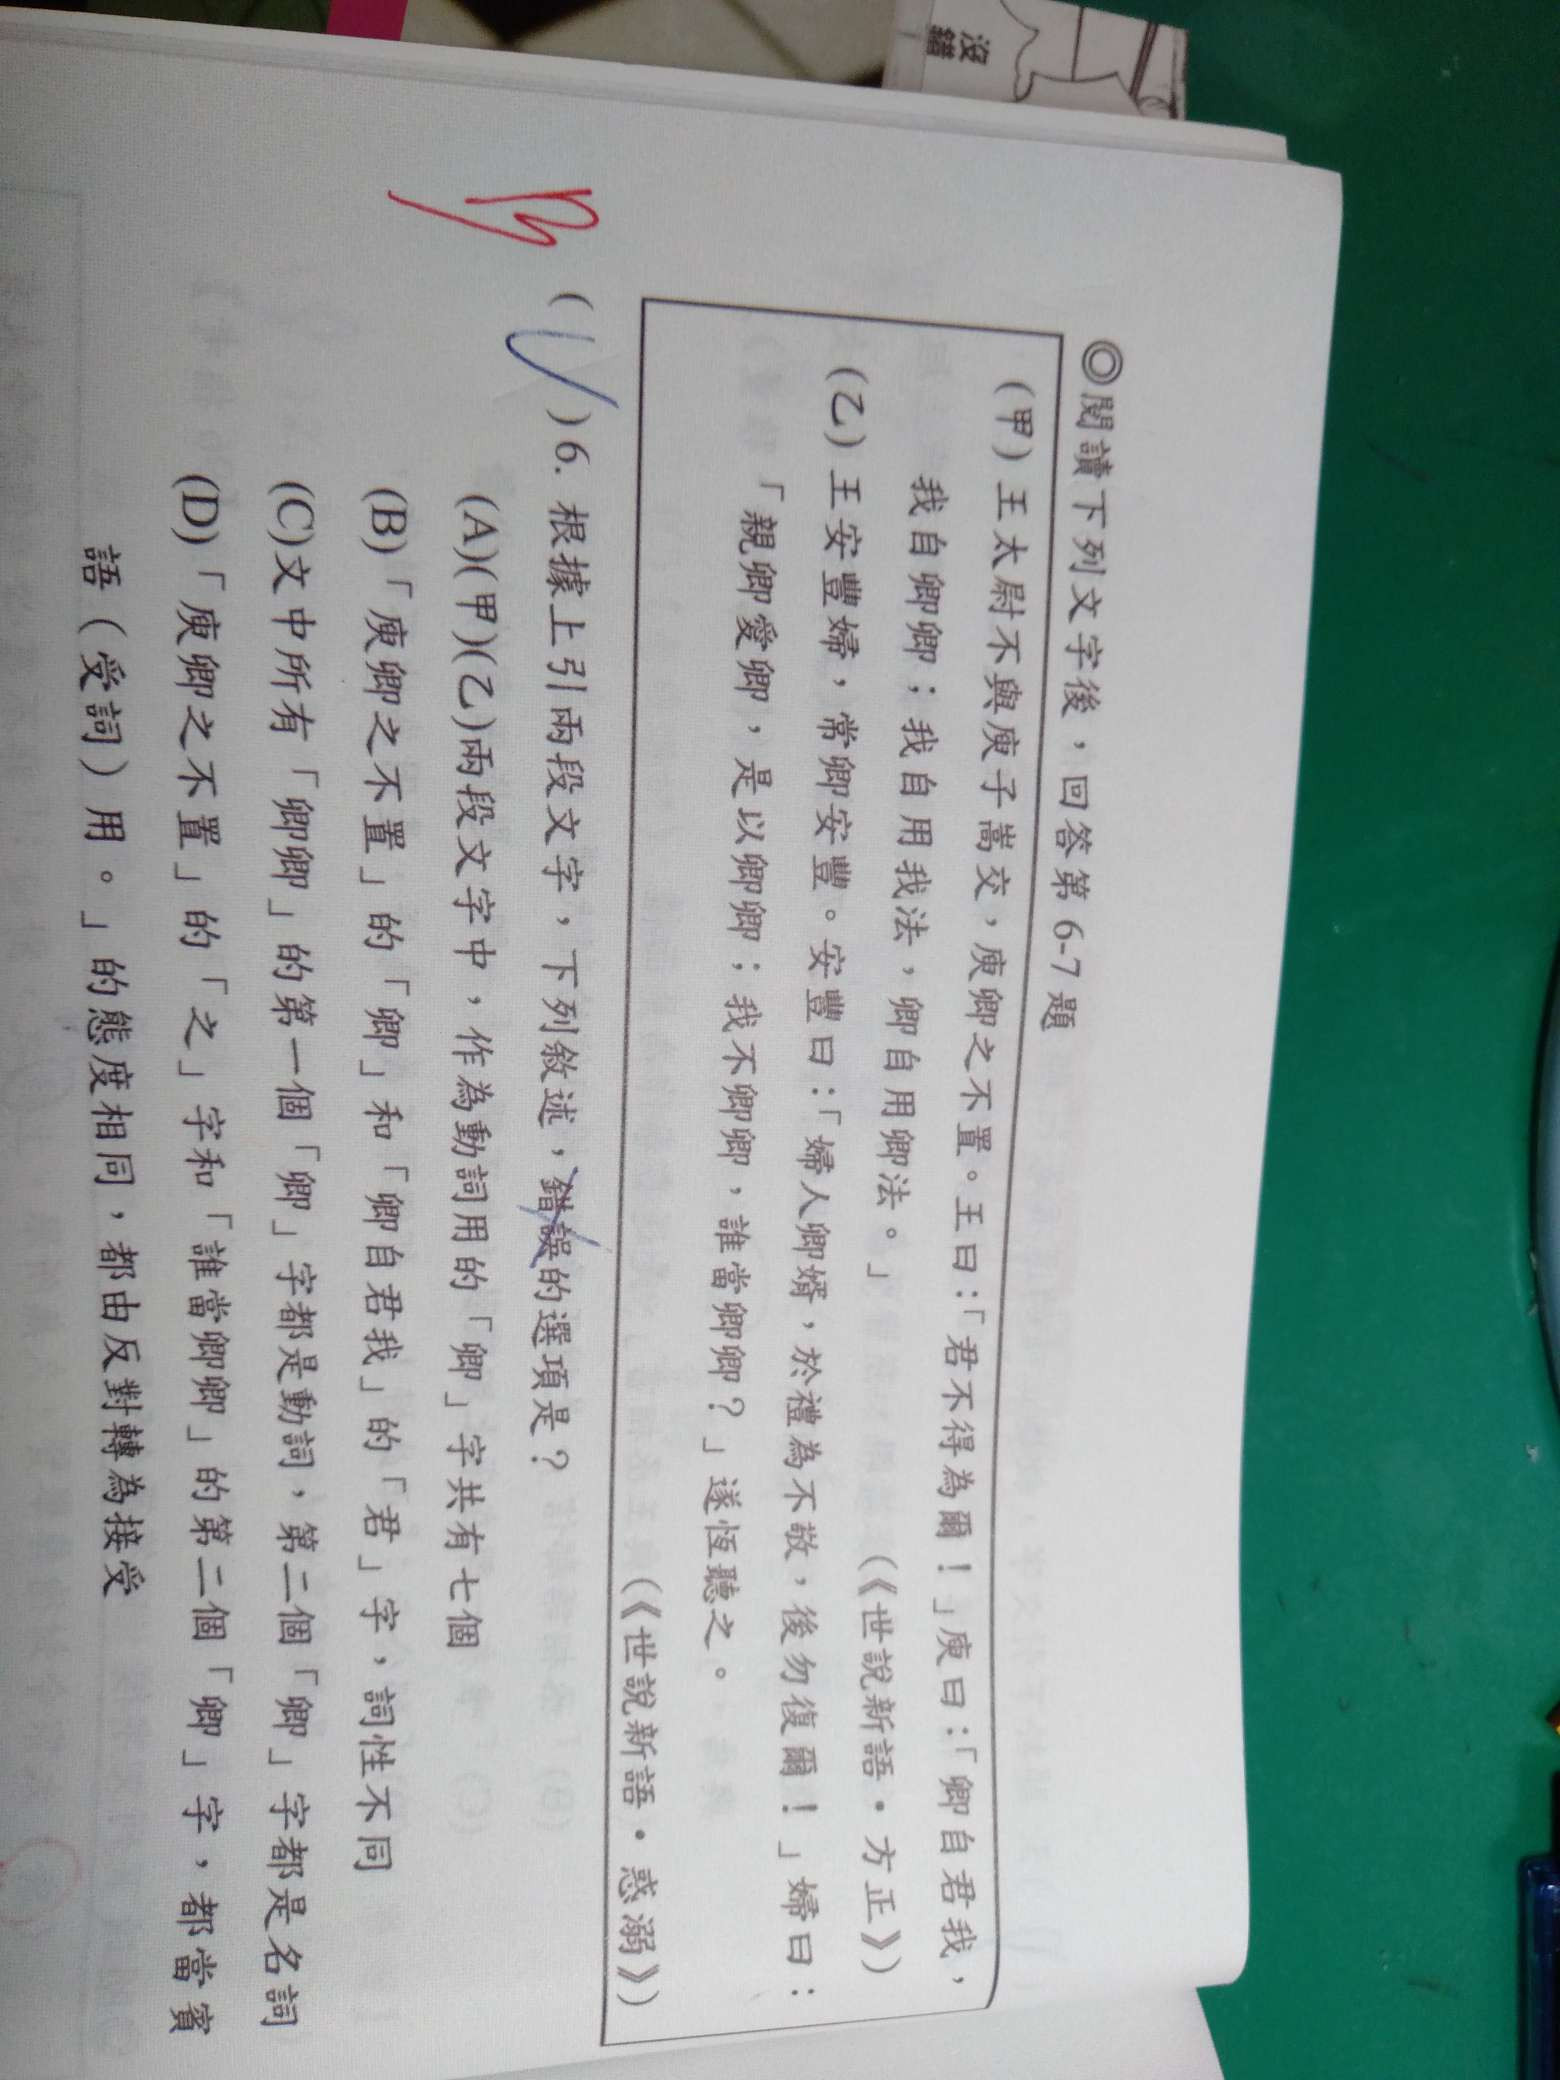 沒錯
◎閱讀下列文字後，回答第 6-7 題
(甲) 王太尉不與庾子嵩交，庾卿之不置。王曰：「君不得為爾！」庾曰：「卿自君我，
我自卿卿；我自用我法，卿自用卿法。」 (《世說新語．方正》)
(乙) 王安豐婦，常卿安豐。安豐曰：「婦人卿婿，於禮為不敬，後勿復爾！」婦曰：
「親卿愛卿，是以卿卿；我不卿卿，誰當卿卿？」遂恆聽之。
(《世說新語．惑溺》)
( )6. 根據上引兩段文字，下列敘述，錯誤的選項是？
(A)(甲)(乙)兩段文字中，作為動詞用的「卿」字共有七個
(B)「庾卿之不置」的「卿」和「卿自君我」的「君」字，詞性不同
(C)文中所有「卿卿」的第一個「卿」字都是動詞，第二個「卿」字都是名詞
(D)「庾卿之不置」的「之」字和「誰當卿卿」的第二個「卿」字，都當賓
語（受詞）用。」的態度相同，都由反對轉為接受